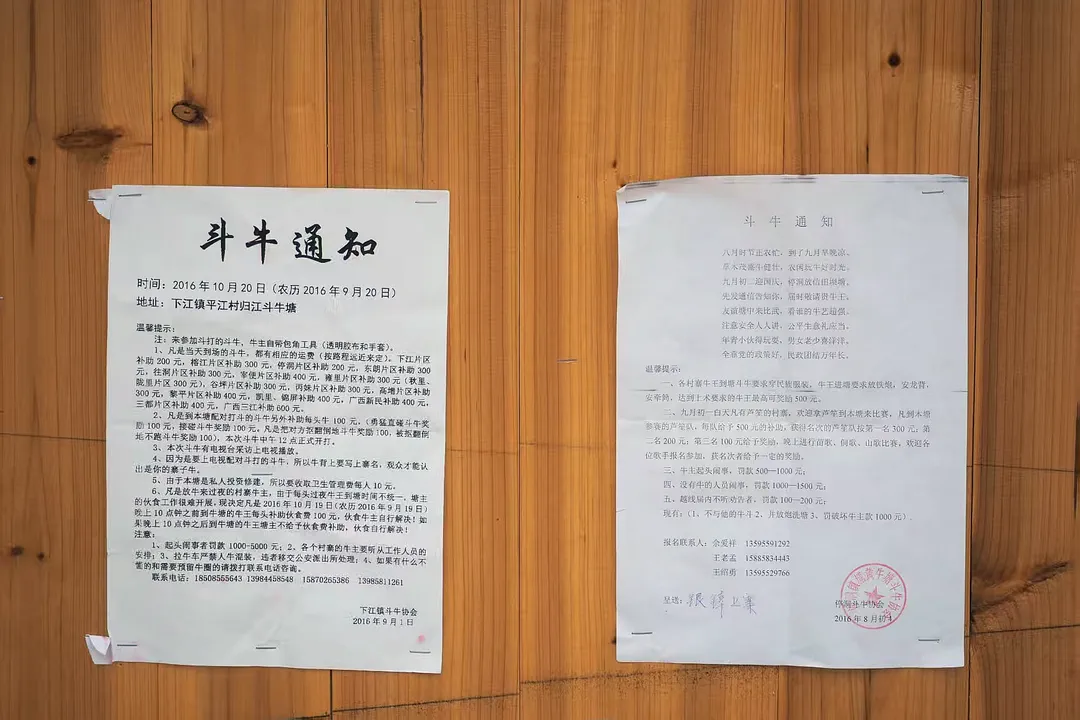 斗牛通知
时间：2016年10月20日（农历2016年9月20日）
地址：下江镇平江村归江斗牛塘
温馨提示：
注：来参加斗打的斗牛，牛主自带包角工具（透明胶布和手套）。
1、凡是当天到场的斗牛，都有相应的运费（按路程远近来定）。下江片区
补助200元，榕江片区补助300元，停洞片区补助200元，东朗片区补助300
元，往洞片区补助300元，宰便片区补助400元，雍里片区补助300元（秋里、
陇里片区300元），谷坪片区补助300元，丙妹片区补助300元，高增片区补助
300元，黎平片区补助400元，凯里、锦屏补助400元，广西新民补助400元，
三都片区补助400元，广西三江补助600元。
2、凡是到本塘配对打的斗牛另外补助每头牛100元，（勇猛直碰斗牛奖
励100元，接碰斗牛奖励100元，凡是把对方抠翻倒地斗牛奖励100，被抠翻倒
地不跑斗牛奖励100），本次斗牛中午12点正式开打。
3、本次斗牛有电视台采访上电视播放。
4、因为是要上电视配对斗打的斗牛，所以牛背上要写上寨名，观众才能认
出是你的寨子牛。
5、由于本塘是私人投资修建，所以要收取卫生管理费每人10元。
6、凡是放牛来过夜的村寨牛主，由于每头过夜牛王到塘时间不统一，塘主
的伙食工作很难开展，现决定凡是2016年10月19日（农历2016年9月19日）
晚上10点钟之前到牛塘的牛王每头补助伙食费100元，伙食牛主自行解决！如
果晚上10点钟之后到牛塘的牛王塘主不给予伙食费补助，伙食自行解决！
注意：
1、起头闹事者罚款1000-5000元；2、各个村寨的牛主要听从工作人员的
安排；3、拉牛车严禁人牛混装，违者移交公安派出所处理；4、如果有什么不
能的和需要预留牛圈的请拨打联系电话咨询。
联系电话：18508555643 13984458548 15870265386 13985811261
下江镇斗牛协会
2016年9月1日
斗牛通知
八月时节正农忙，到了九月早晚凉。
草木茂盛牛健壮，农闲玩牛好时光。
九月初二迎国庆，停洞放信甲坝塘。
先发通信告知你，届时敬请贵牛王。
友谊塘中来比武，看谁的牛艺超强。
注意安全人人讲，公平生意礼应当。
年青小伙得玩耍，男女老少喜洋洋。
全意党的政策好，民政团结万年长。
温馨提示：
一、各村寨牛王到塘斗牛要求穿民族服装，牛王进塘要求放铁炮，安龙背，
安牵筒，达到上术要求的牛王最高可奖励500元。
二、九月初一白天凡有芦笙的村寨，欢迎拿芦笙到本塘来比赛，凡到本塘
参赛的芦笙队，每队给予500元的补助，获得名次的芦笙队按第一名300元；第
二名200元；第三名100元给予奖励，晚上进行苗歌、侗歌、山歌比赛，欢迎各
位歌手报名参加，获名次者给予一定的奖励。
三、牛主起头闹事，罚款500—1000元；
四、没有牛的人员闹事，罚款1000—1500元；
五、越线届内不听劝告者，罚款100—200元；
现有：（1、不与他的牛斗2、并放炮洗塘3、罚破坏牛主款1000元）.
报名联系人：佘爱祥 13595591292
王老孟 15885834443
王绍勇 13595529766
呈送：
停洞斗牛协会
2016年8月初4